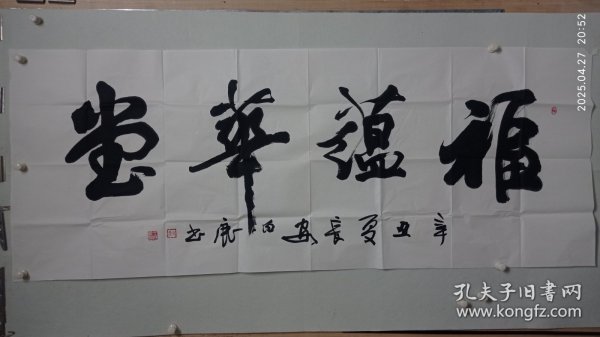 福蕴華堂
辛丑夏長安
书
2025.04.27 20:52
孔夫子旧书网
www.kongfz.com